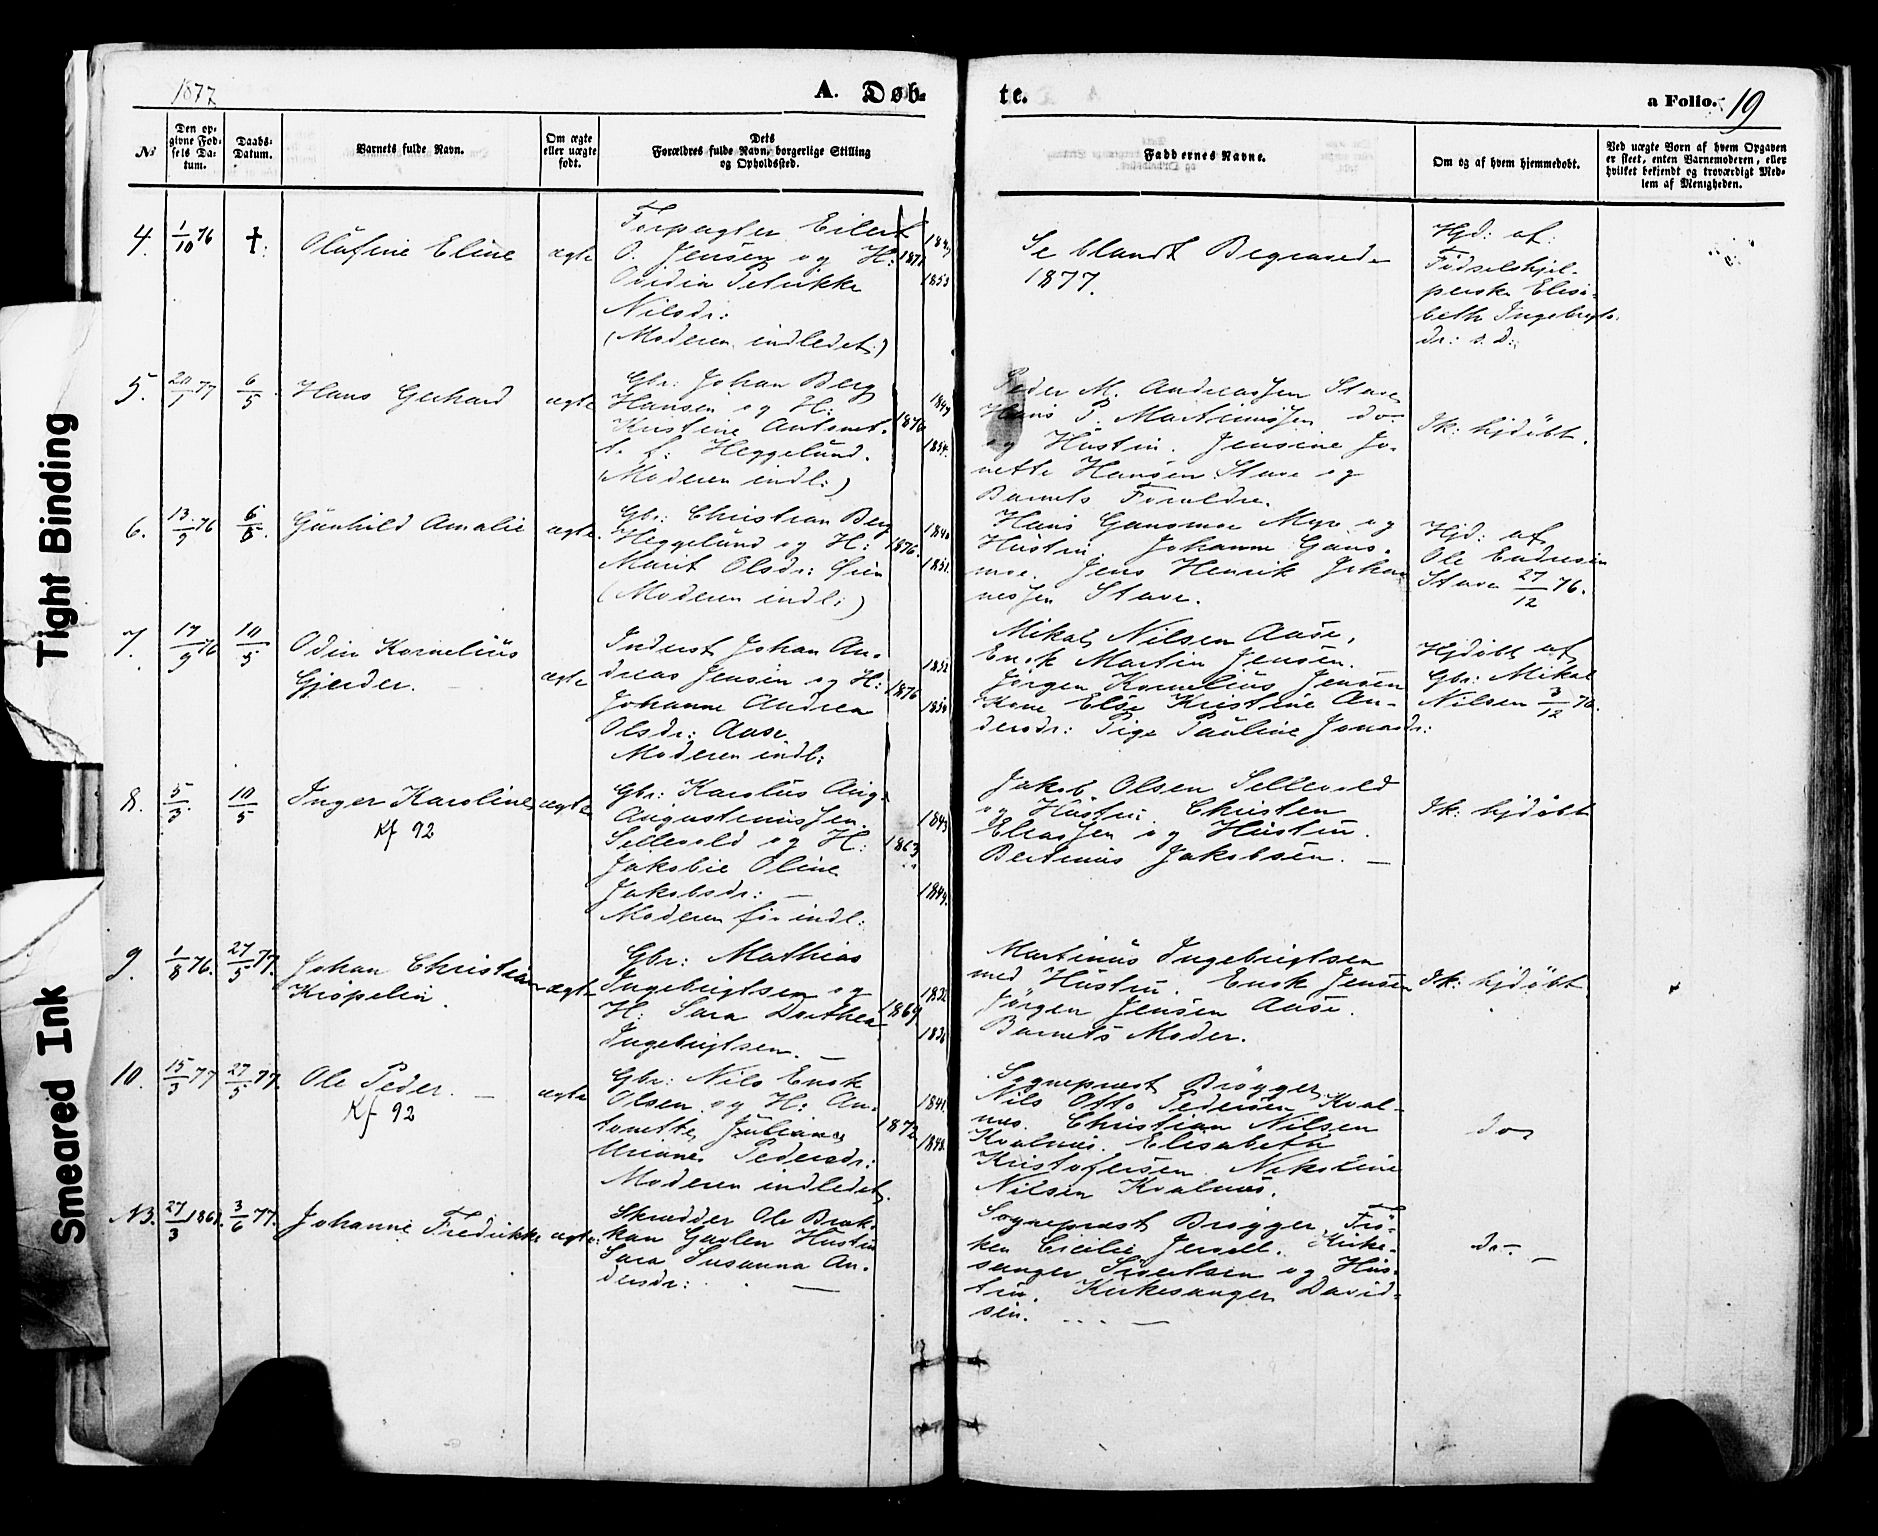 1877
A. Døb-
te.
a Folio. 19
No
Den op-
givne Fød-
sels Da-
tum.
Daabs-
Datum.
Barnets fulde Navn.
Om ægte
eller uægte
født.
Dets
Forældres fulde Navn, borgerlige Stilling
og Opholdssted.
Faddernes Navne.
Om og af hvem hjemmedøbt.
Ved uægte Børn af hvem Opgaven
er skeet, enten Barnemoderen, eller
hvilket bekjendt og troværdigt Med-
lem af Menigheden.
4. 1/10 76 †. Olufine Eline ægte
Forpagter Eilert
O. Jensen og H:
Ovidia Petrikke
Nilsdr:
(Moderen indledet)
1871
1853
Se blandt Begravede
1877.
Hjd: af:
Fødselshjel-
perske Elisa-
beth Ingebrigts-
dr: s. d:
5. 20/1 77 6/5 Hans Gerhard ægte
Gbr: Johan Berg
Hansen og H:
Kristine Antonet-
te f: Heggelund.
(Moderen indl:)
1876
1849
1854.
Peder M. Andreassen Stave
Hans P. Martinussen do
og Hustru. Jensine Jo-
nette Hansen Stave og
Barnets Forældre.
Ik: hjdøbt.
6. 13/9 76 6/5. Gunhild Amalie ægte.
Gbr: Christian Berg
Heggelund og H:
Marit Olsdr: Øien
(Moderen indl:)
1876.
1840
1851.
Hans Gansmoe Myr og
Hustru. Johanna Gans-
moe. Jens Henrik Johan-
nessen Stave.
Hjd: af
Ole Endresen
Stave 27/12 76.
7. 17/9 76 10/5 Odin Kornelius
Gjerder. — ægte
Inderst Johan An-
dreas Jensen og H:
Johanne Andrea
Olsdr: Aase
Moderen indl:
1876
1852
1850
Mikal Nilsen Aase,
Enok Martin Jensen.
Jørgen Kornelius Jensen
Kone Else Kristine An-
dersdr: Pige Pauline Jonasdr:
Hjdøbt af
Gbr: Mikal
Nilsen 3/12 76.
8. 5/3 10/5 Inger Karoline ægte
Kf 92
Gbr: Karolus Aug-
Augustinussen
Sellevold og H:
Jakobie Oline
Jakobsdr: —
Moderen før indl:
1863
1843
1844.
Jakob Olsen Sellevold
og Hustru. Christen
Eliassen og Hustru.
Bertinus Jakobsen. —
Ik: hjdøbt
9. 1/8 76. 27/5 77. Johan Christian
Kispelin. ægte
Gbr: Mathias
Ingebrigtsen og
H: Sara Dorthea
Ingebrigtsen. —
1869
Martinus Ingebrigtsen
med Hustru. Enok Jensen
Jørgen Jensen Aase.
Barnets Moder.
Ik: hjdøbt.
10. 15/3 77 27/5 77. Ole Peder. — ægte
Kf 92
Gbr: Nils Enok
Olsen og H: An-
tonette Juliana
Uriane Pedersdr:
Moderen indledet.
1872
1841.
1848.
Sogneprest Brøgger
Nils Otto Pedersen Kval-
nes. Christian Nilsen
Kvalnæs. Elisabeth
Kristofersen. Nikoline
Nilsen Kvalnæs.
do
NB. 27/3 186 3/6 77. Johanne Fredrikke ægte:
Skrædder Ole Brek-
kan Gaolen Hustru
Sara Susanna An-
dersdr: —
Sogneprest Brøgger, Frø-
ken Cicilie Jersell. Kirke-
sanger Sivertsen og Hus-
tru. Kirkesanger David-
sen. —
do. —
Tight Binding
Smeared Ink